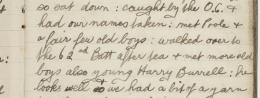 so sat down : caught by the O.C. &
had our names taken : met Poole &
a fair few old boys : walked over to
the 62nd Batt after tea & met more old
boys also young Harry Burrell : he
looks well so we had a bit of a yarn